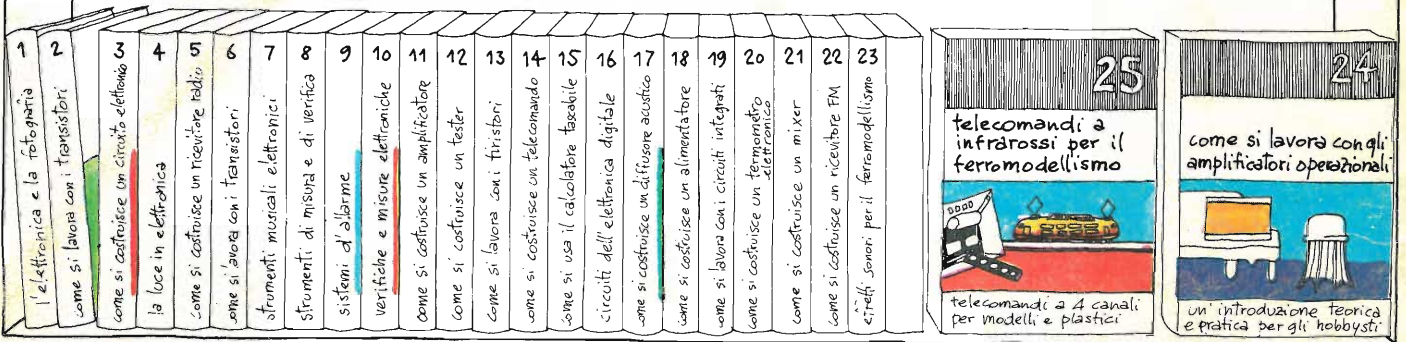 1
l'elettronica e la fotografia
2
come si lavora con i transistori
3
come si costruisce un circuito elettronico
4
la luce in elettronica
5
come si costruisce un ricevitore radio
6
come si lavora con i transistori
7
strumenti musicali elettronici
8
strumenti di misura e di verifica
9
sistemi d'allarme
10
verifiche e misure elettroniche
11
come si costruisce un amplificatore
12
come si costruisce un tester
13
come si lavora con i tiristori
14
come si costruisce un telecomando
15
come si usa il calcolatore tascabile
16
circuiti dell'elettronica digitale
17
come si costruisce un diffusore acustico
18
come si costruisce un alimentatore
19
come si lavora con i circuiti integrati
20
come si costruisce un termometro
elettronico
21
come si costruisce un mixer
22
come si costruisce un ricevitore FM
23
effetti sonori per il ferromodellismo
25
telecomandi a
infrarossi per il
ferromodellismo
telecomandi a 4 canali
per modelli e plastici
24
come si lavora con gli
amplificatori operazionali
un'introduzione teorica
e pratica per gli hobbysti